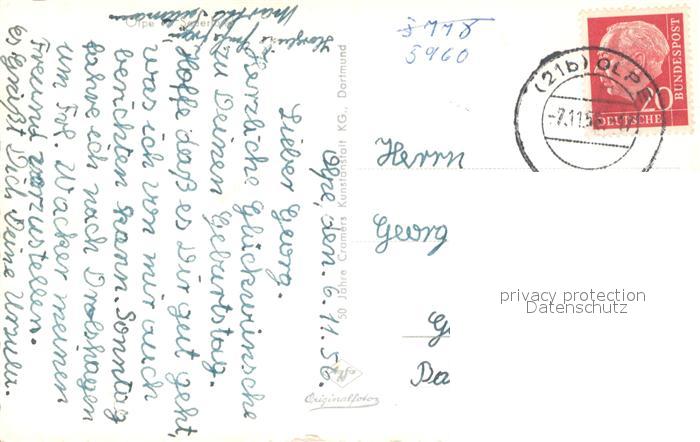 Olpe, den 6.11.56.
Lieber Georg.
Herzliche Glückwünsche
zu Deinen Geburtstag.
Hoffe daß es Dir gut geht,
was ich von mir auch
berichten kann. Sonntag
fahre ich nach Drolshagen
um Frl. Wacker meinen
Freund vorzustellen.
es grüßt Dich Deine Ursula.
Olpe
50 Jahre Cramers Kunstanstalt KG., Dortmund
Originalfotos
5960
(21b) OLPE
-7.11.5
20
DEUTSCHE
BUNDESPOST
Herrn
Georg
G
Ba
privacy protection
Datenschutz